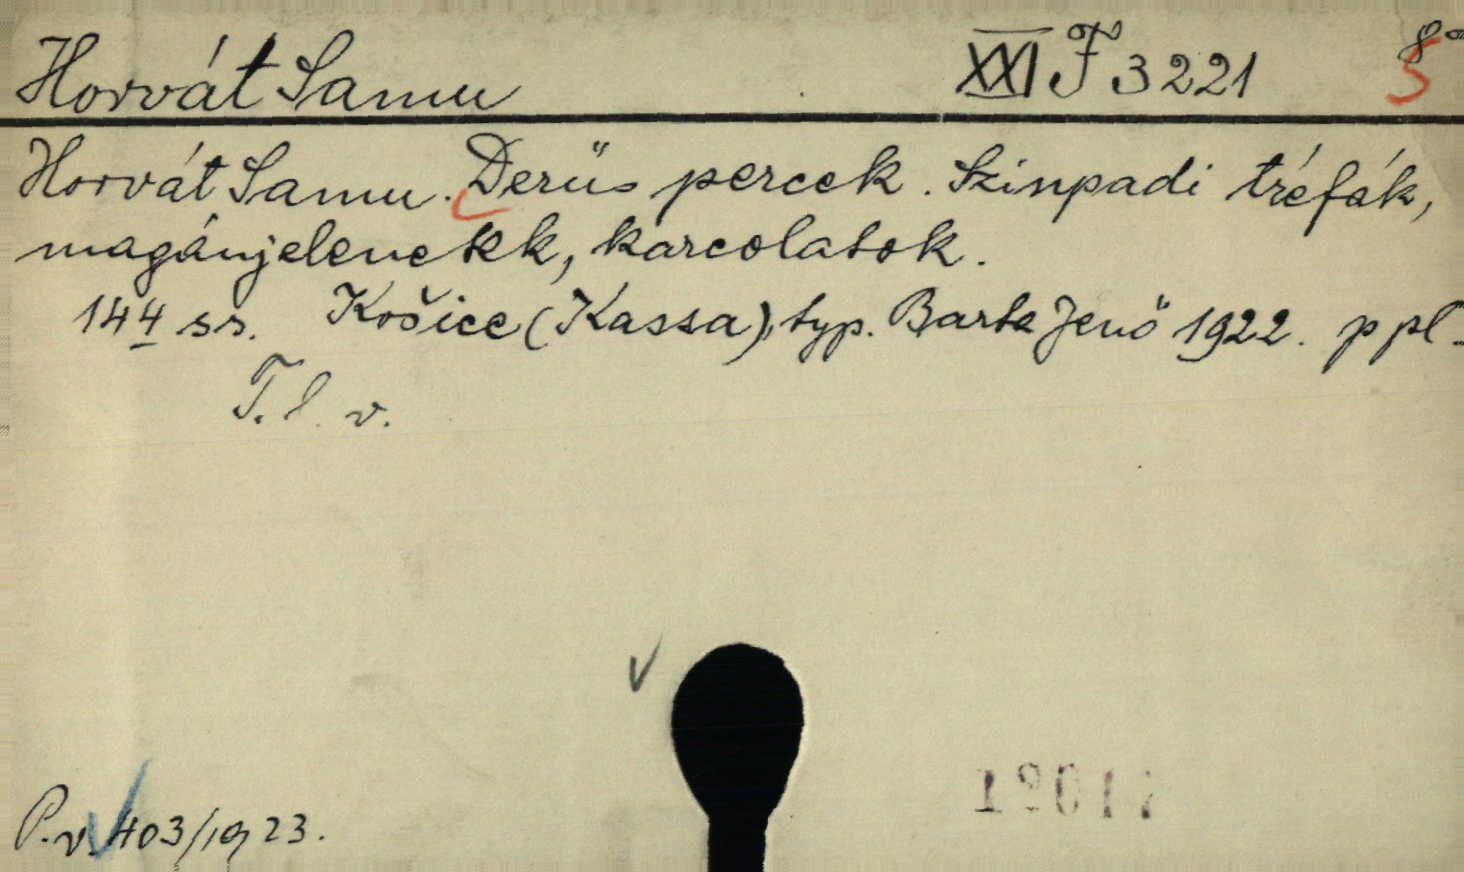 Horvát Samu XXI F 3221 8°
5
Horvát Samu. Derűs percek. Szinpadi tréfák,
magánjelenetek, karcolatok.
144 ss. Košice (Kassa), typ. Barta Jenő 1922. ppl.
T. l. v.
P. v. 403/1923.